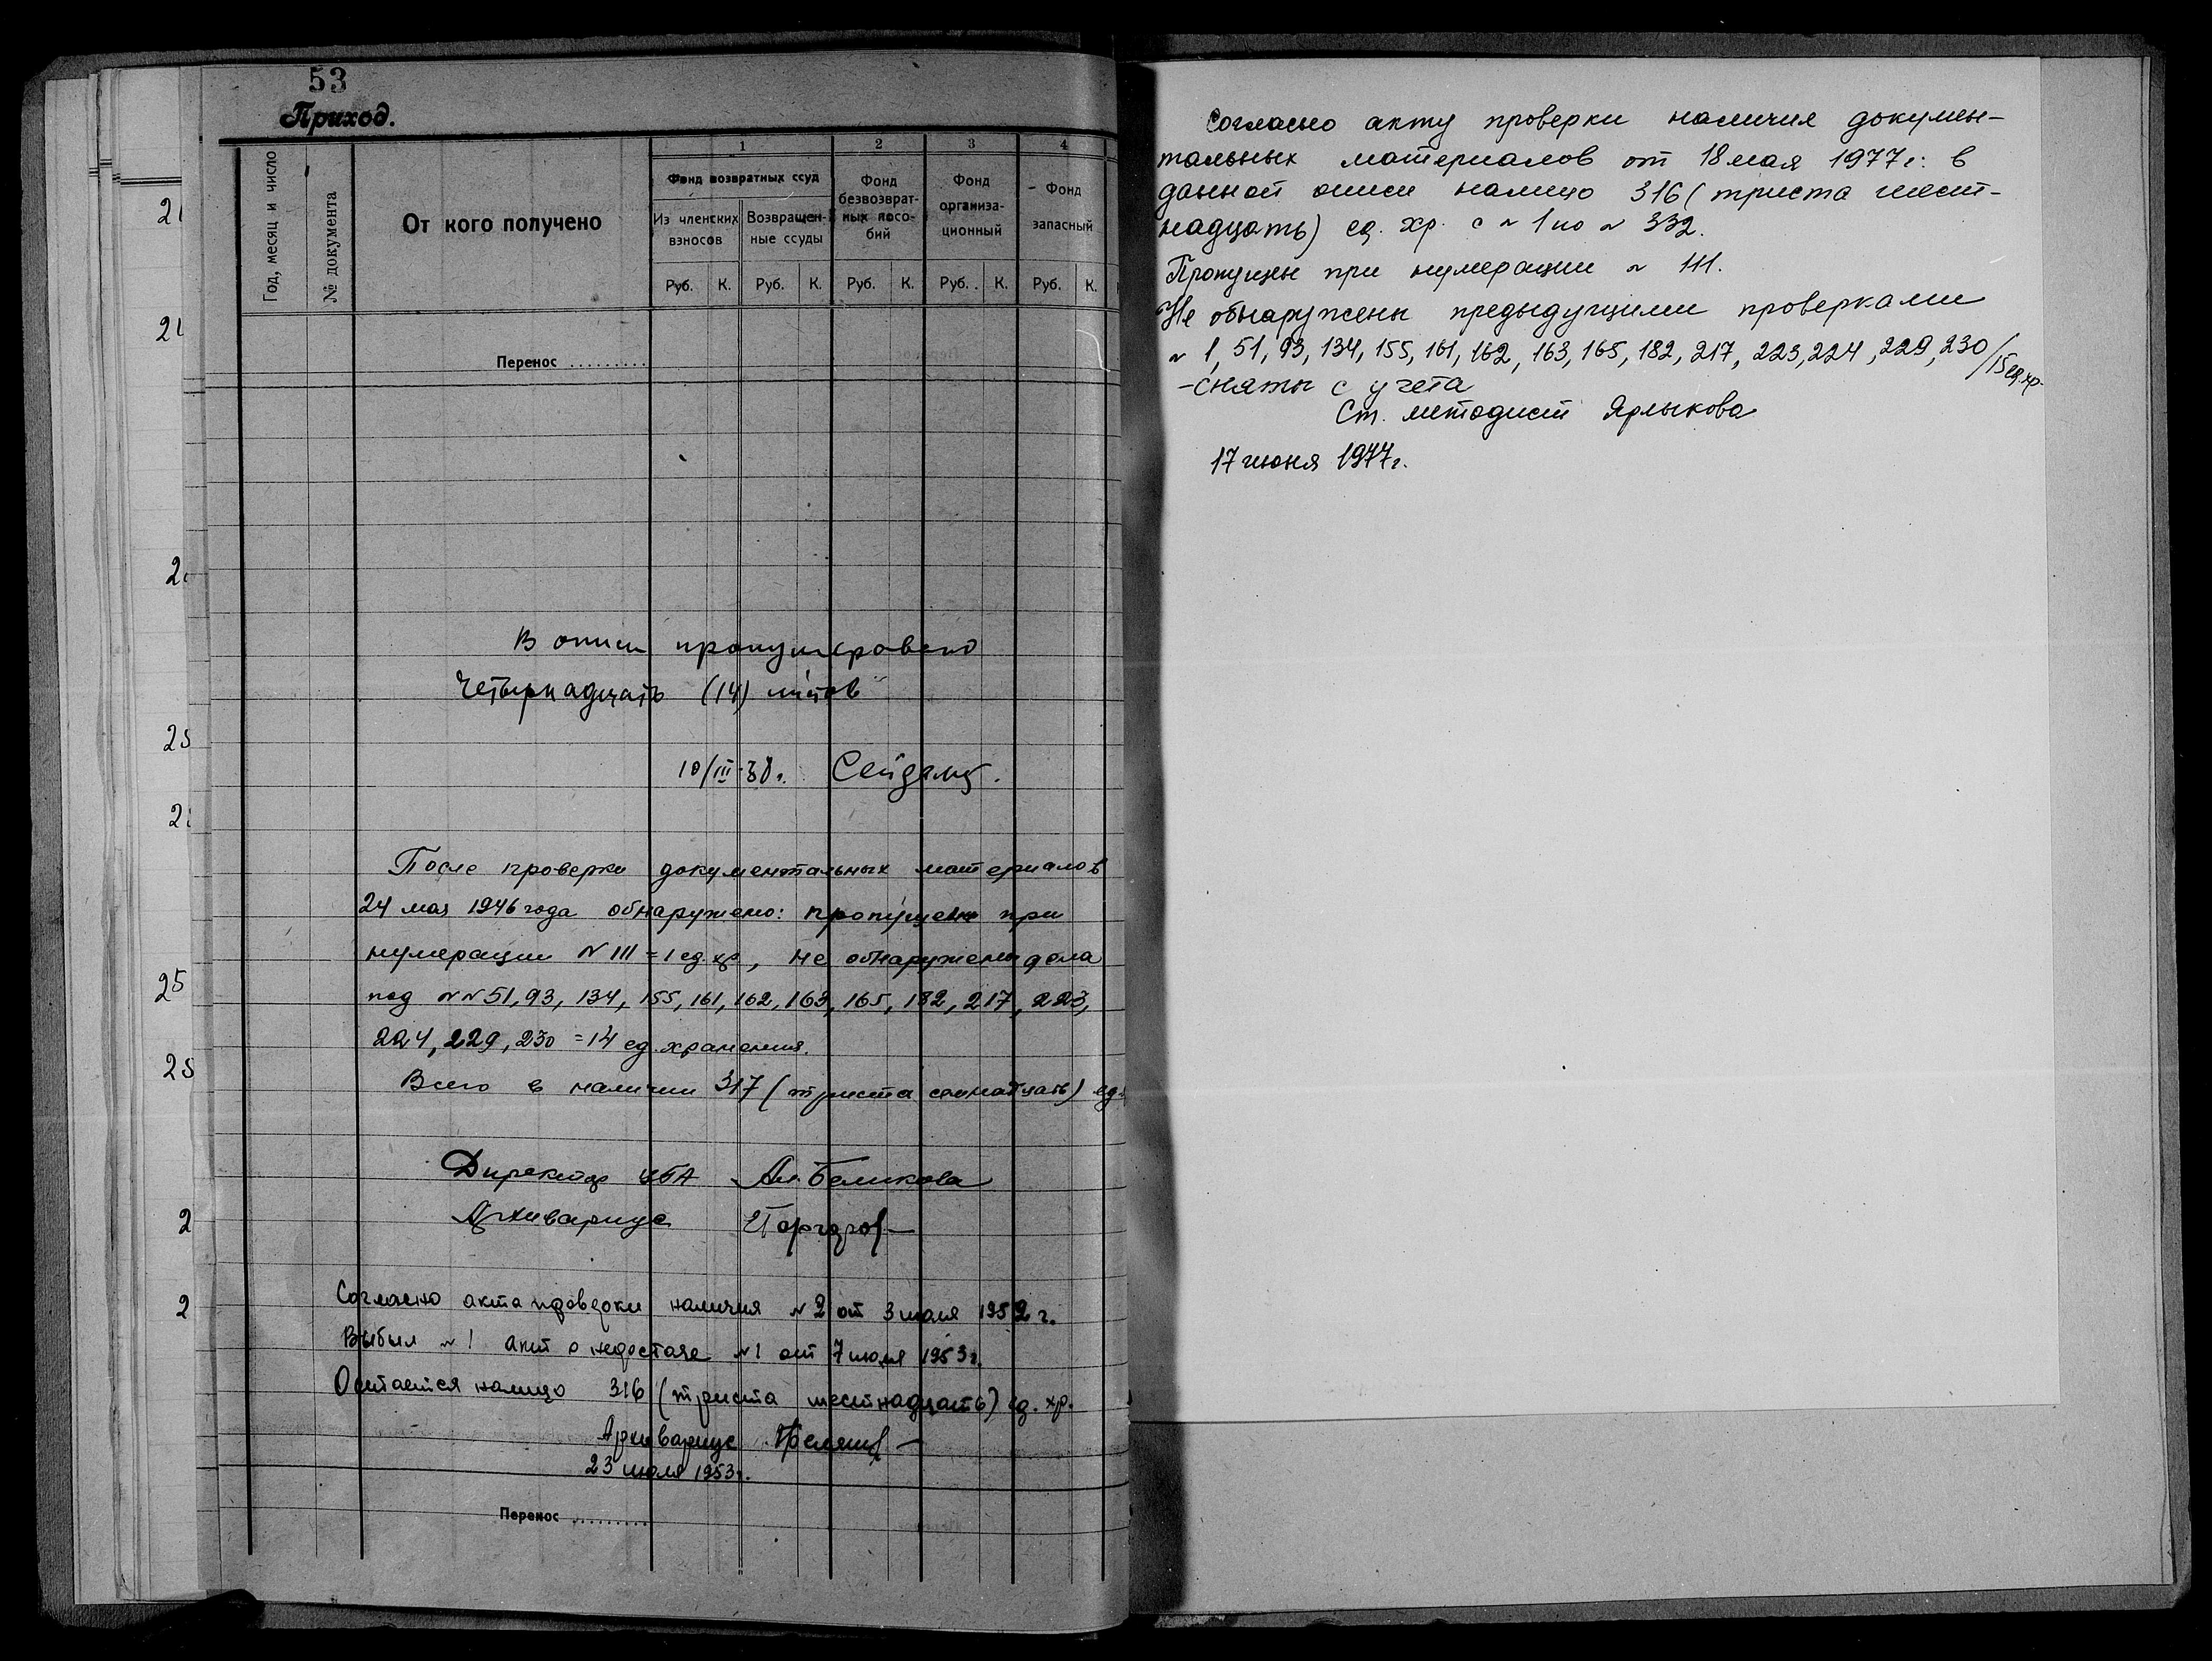 53
Приход.
Год, месяц и число
№ документа
От кого получено
1
2
3
4
Фонд возвратных ссуд
Из членских взносов
Возвращен-
ные ссуды
Фонд
безвозврат-
ных посо-
бий
Фонд
организа-
ционный
Фонд
запасный
Руб. К. Руб. К. Руб. К. Руб. К. Руб. К.
Перенос .........
В описи пронумеровано
Четырнадцать (14) листов
10/III-38г.
После проверки документальных материалов
24 мая 1946 года обнаружено: пропущен при
нумерации N 111 = 1 ед. хр, не обнаружены дела
под NN 51, 93, 134, 155, 161, 162, 163, 165, 182, 217, 223,
224, 229, 230 = 14 ед. хранения.
Всего в наличии 317 (триста семнадцать) ед.
Директор Ал. Беликова
Архивариус
Согласно акта проверки наличия N 2 от 3 июля 1952 г.
Выбыл N 1 акт о недостаче N 1 от 7 июля 1953г.
Остается налицо 316 (триста шестнадцать) ед. хр.
Архивариус
23 июля 1953г.
Перенос .........
Согласно акту проверки наличия докумен-
тальных материалов от 18 мая 1977г. в
данной описи налицо 316 (триста шест-
надцать) ед. хр. с N 1 по N 332.
Пропущены при нумерации N 111.
Не обнаружены предыдущими проверками
N 1, 51, 93, 134, 155, 161, 162, 163, 165, 182, 217, 223, 224, 229, 230 /15 ед. хр.
- сняты с учета
Ст. методист Ярлыкова
17 июня 1977г.